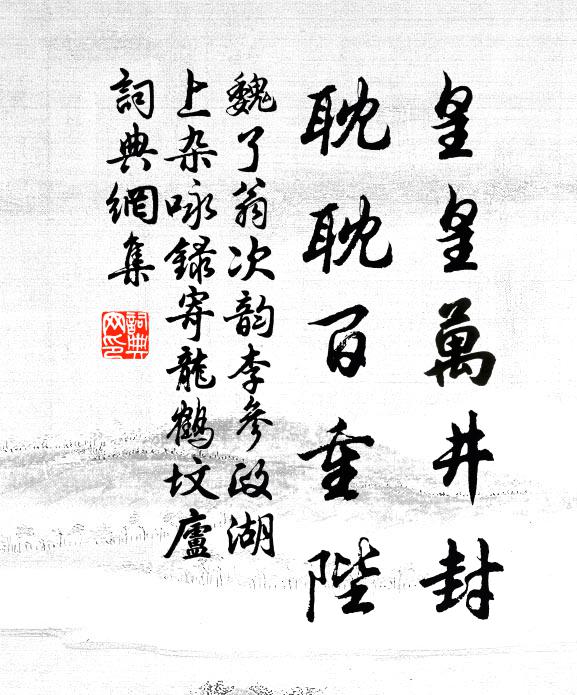 皇皇萬井封
耽耽百重陛
魏了翁次韵李參政湖
上杂咏録寄龍鶴坟廬
詞典網集
詞典
网印